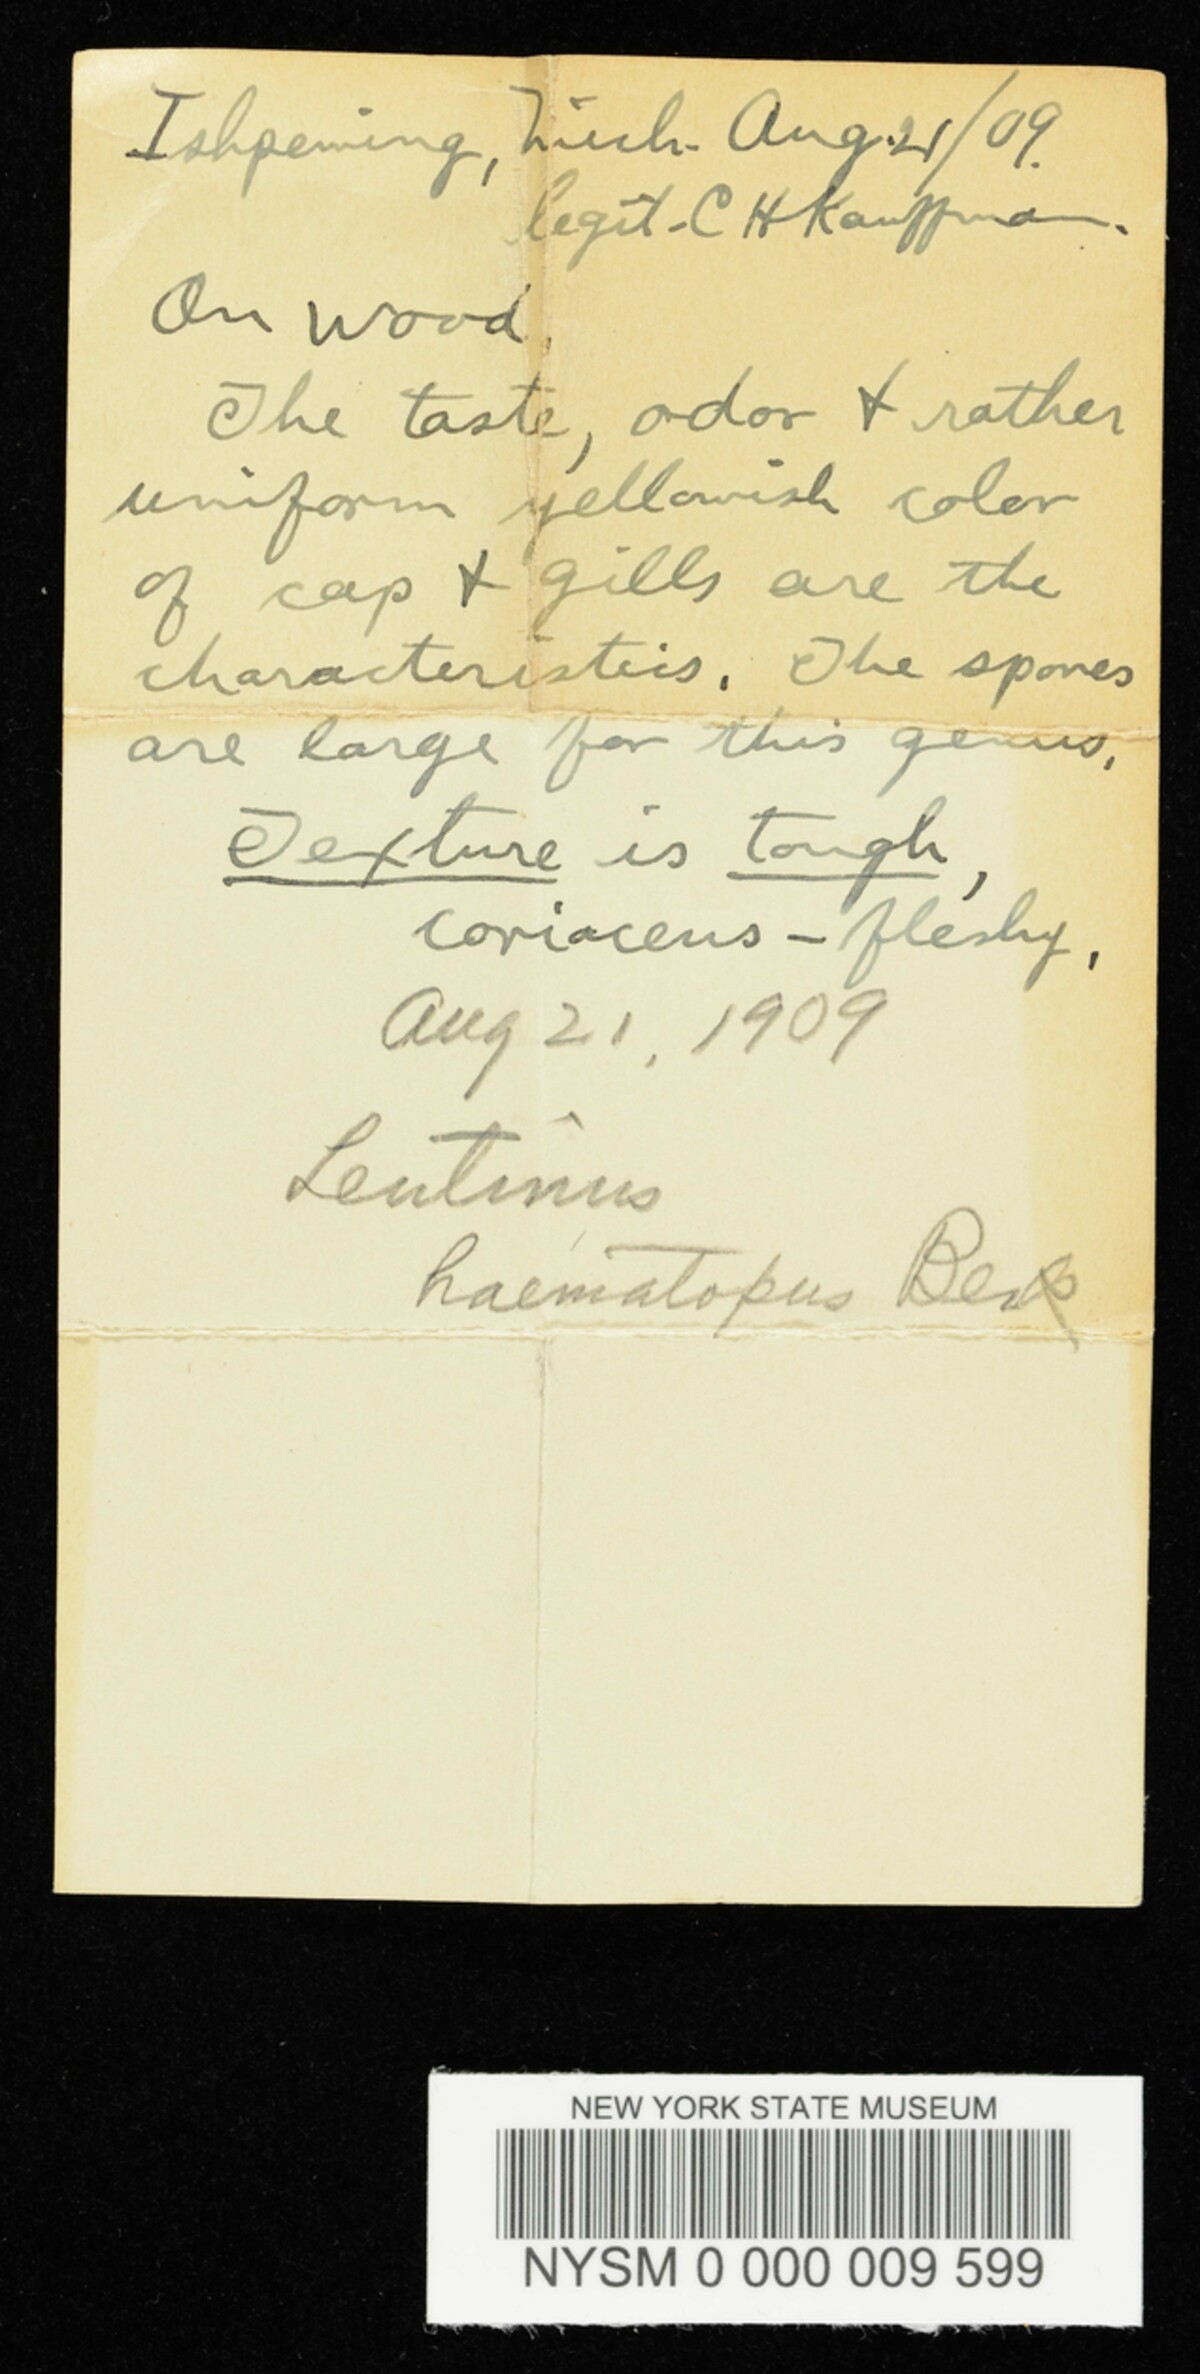 Ishpeming, Mich. Aug. 21/09.
legit - C H Kauffman.
On wood.
The taste, odor & rather
uniform yellowish color
of cap & gills are the
characteristics. The spores
are large for this genus.
Texture is tough,
coriaceus - fleshy.
Aug 21, 1909
Lentinus
haematopus Berk
NEW YORK STATE MUSEUM
NYSM 0 000 009 599